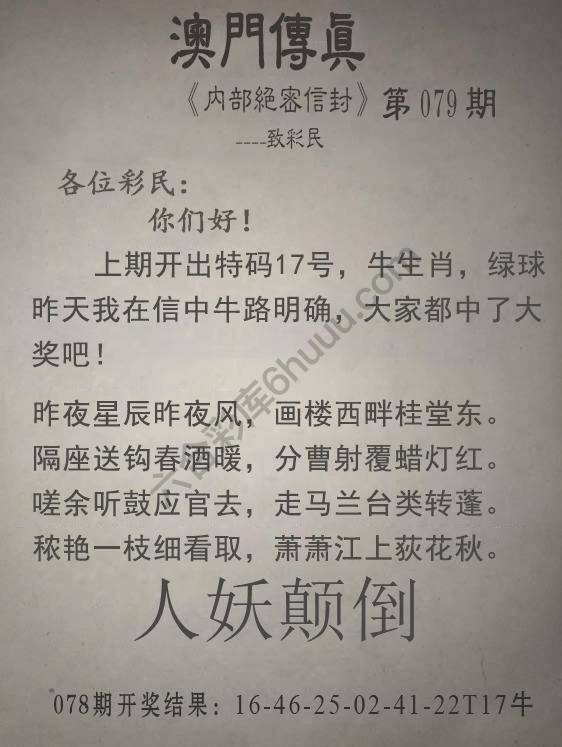 澳門傳真
《内部絕密信封》第079期
----致彩民
各位彩民：
你们好！
上期开出特码17号，牛生肖，绿球
昨天我在信中牛路明确，大家都中了大
奖吧！
昨夜星辰昨夜风，画楼西畔桂堂东。
隔座送钩春酒暖，分曹射覆蜡灯红。
嗟余听鼓应官去，走马兰台类转蓬。
秾艳一枝细看取，萧萧江上荻花秋。
人妖颠倒
078期开奖结果：16-46-25-02-41-22T17牛
六合彩库6huuu.com